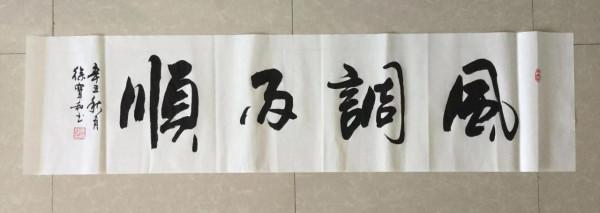 風調雨順
辛丑秋月
徐寶和书